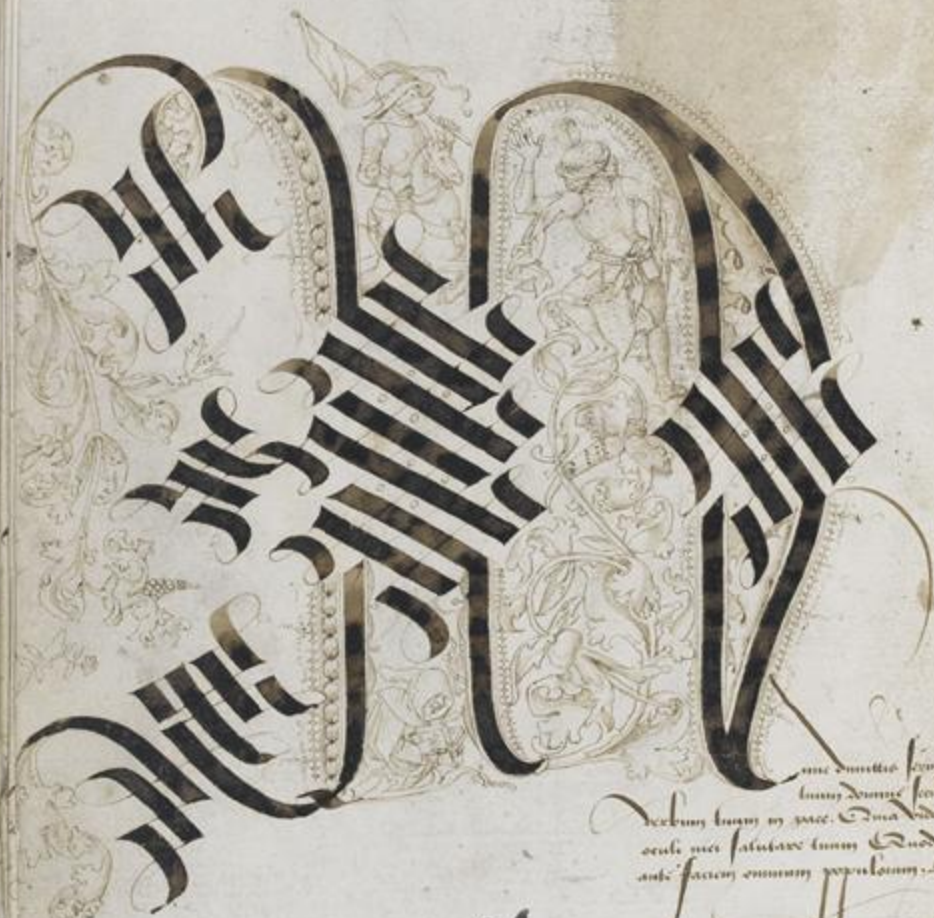 Nunc dimittis ser
tuum domine sec
verbum tuum in pace. Quia vid
oculi mei salutare tuum Quod
ante faciem omnium populorum.